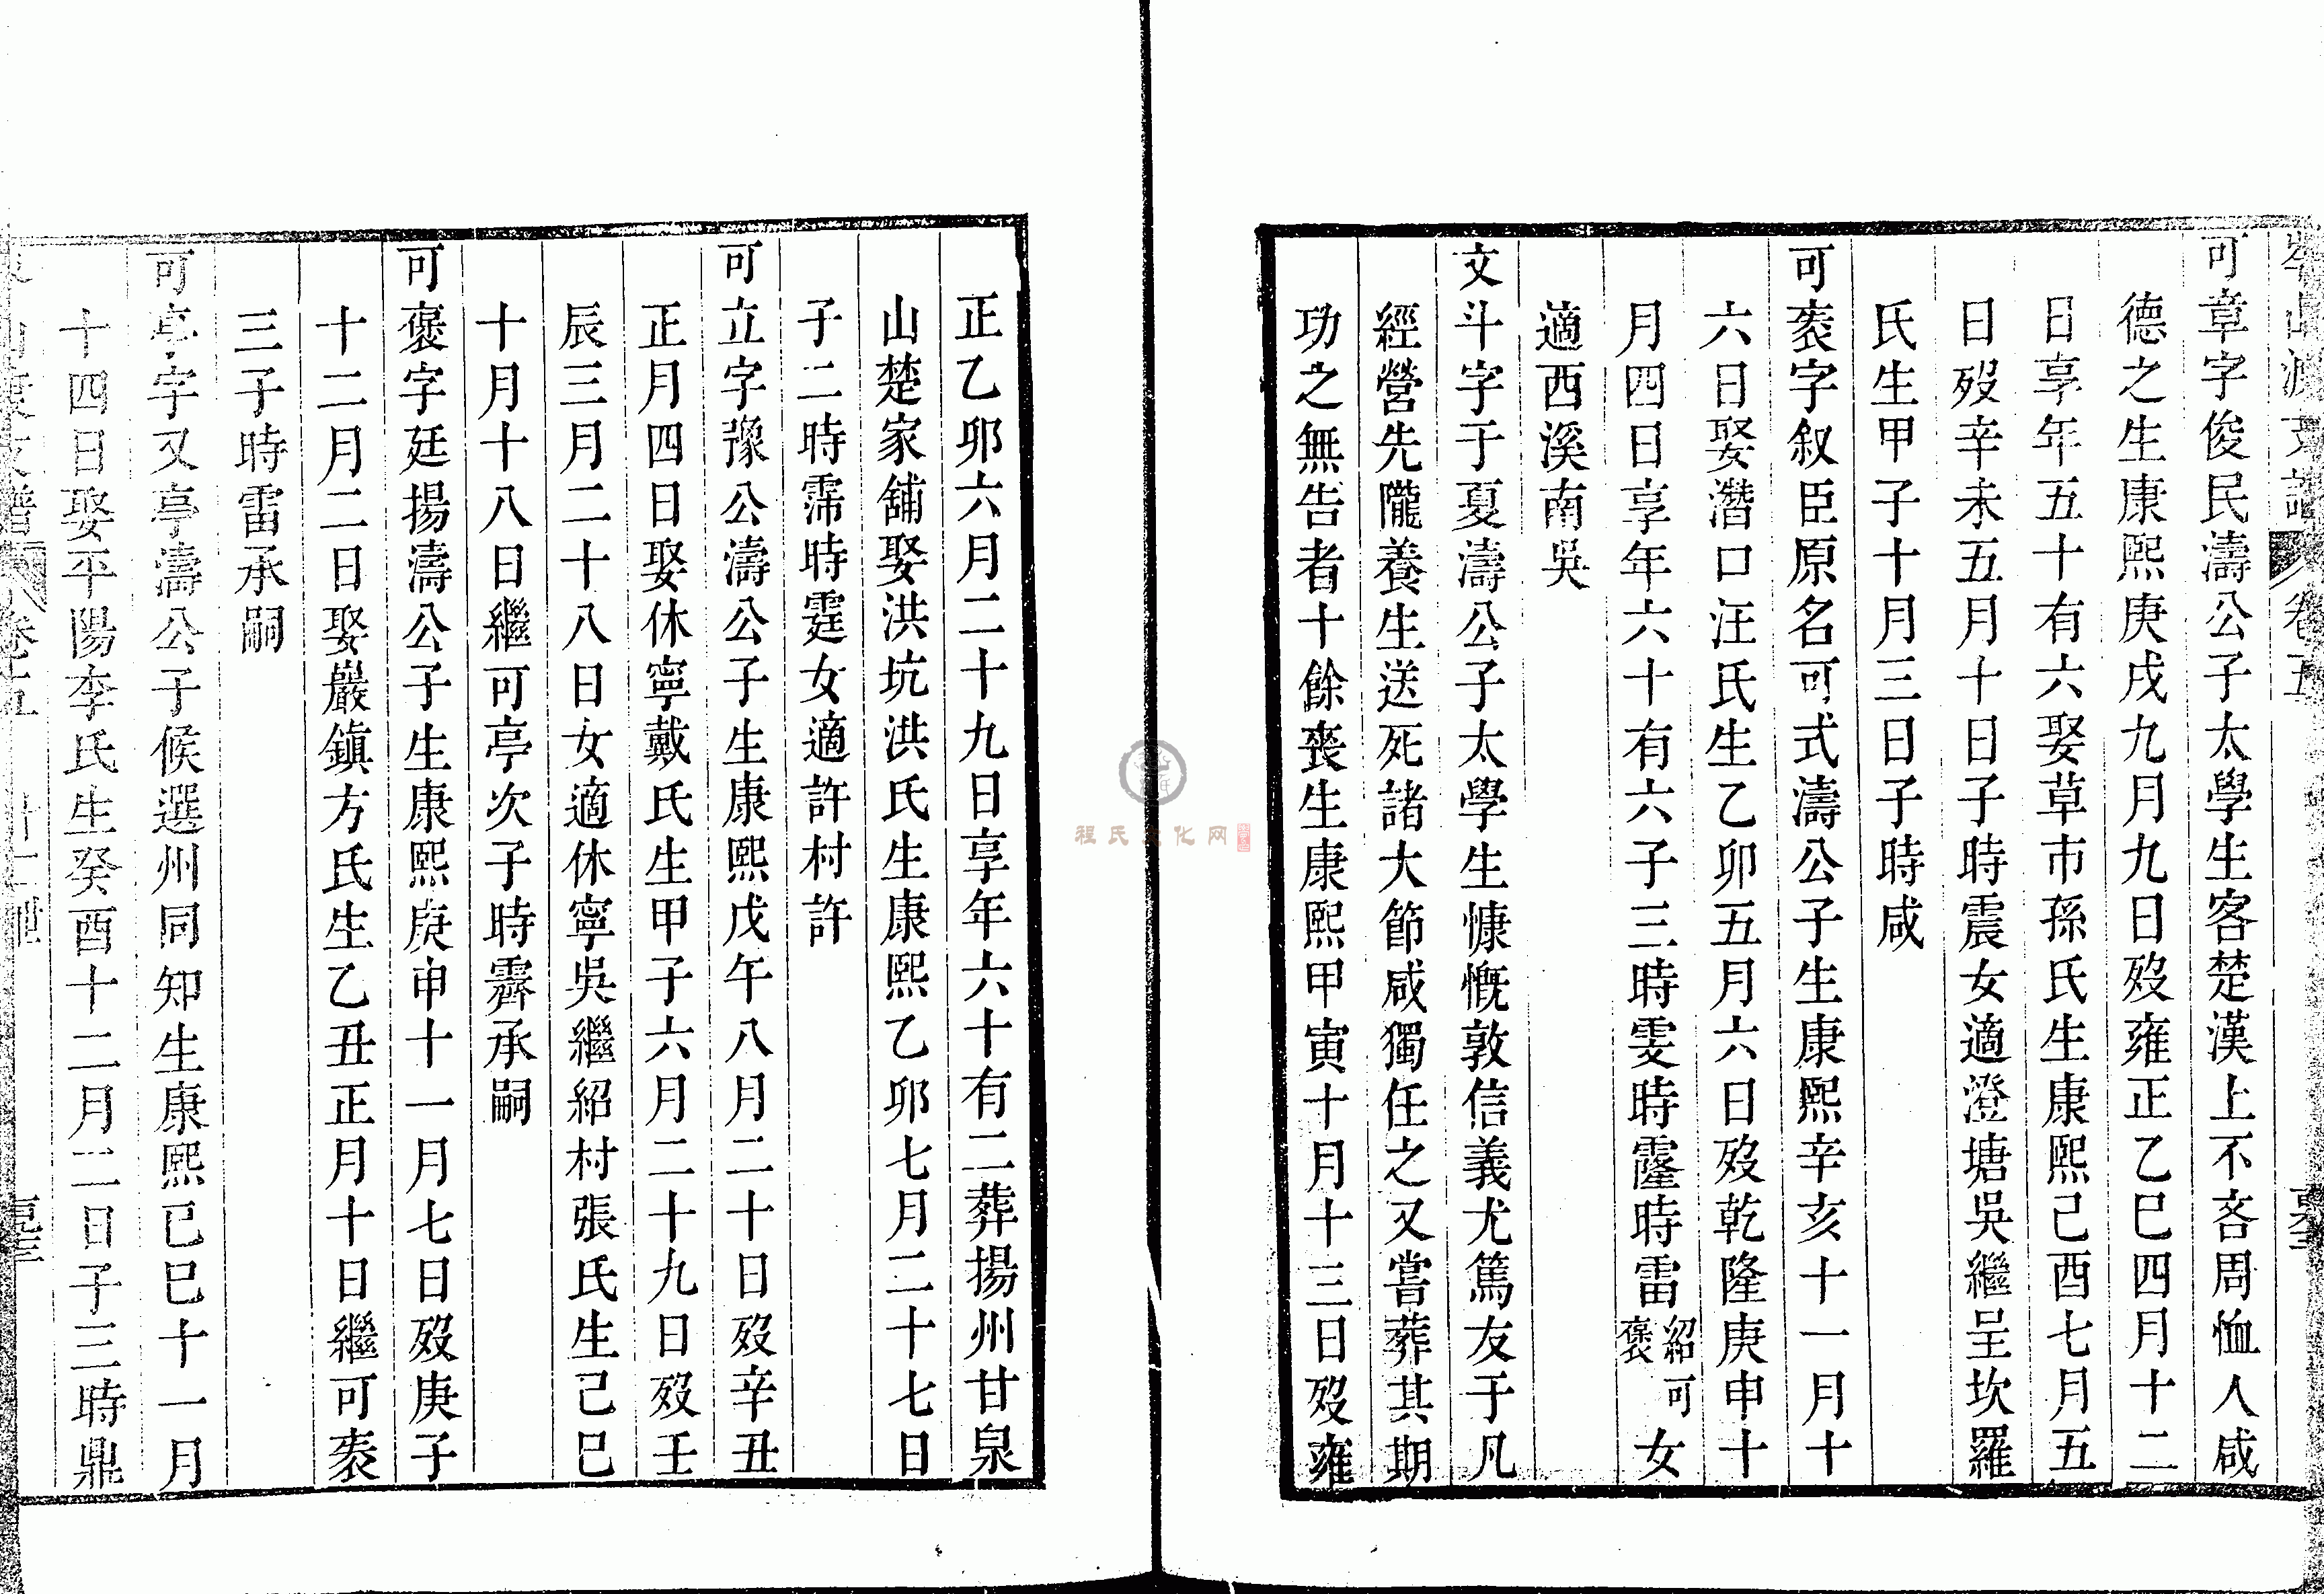 可章字俊民濤公子太學生客楚漢上不吝周恤人咸
德之生康熙庚戌九月九日歿雍正乙巳四月十二
日享年五十有六娶草市孫氏生康熙己酉七月五
日歿辛未五月十日子時震女適澄塘吳繼呈坎羅
氏生甲子十月三日子時咸
可袠字叙臣原名可式濤公子生康熙辛亥十一月十
六日娶潛口汪氏生乙卯五月六日歿乾隆庚申十
月四日享年六十有六子三時雯時霳時雷紹可褒女
適西溪南吳
文斗字于夏濤公子太學生慷慨敦信義尤篤友于凡
經營先隴養生送死諸大節咸獨任之又嘗葬其期
功之無告者十餘喪生康熙甲寅十月十三日歿雍
正乙卯六月二十九日享年六十有二葬揚州甘泉
山楚家舖娶洪坑洪氏生康熙乙卯七月二十七日
子二時霈時霆女適許村許
可立字豫公濤公子生康熙戊午八月二十日歿辛丑
正月四日娶休寧戴氏生甲子六月二十九日歿壬
辰三月二十八日女適休寧吳繼紹村張氏生己巳
十月十八日繼可亭次子時霽承嗣
可褒字廷揚濤公子生康熙庚申十一月七日歿庚子
十二月二日娶巖鎮方氏生乙丑正月十日繼可袠
三子時雷承嗣
可亭字又亭濤公子候選州同知生康熙己巳十一月
十四日娶平陽李氏生癸酉十二月二日子三時鼎
程氏文化网